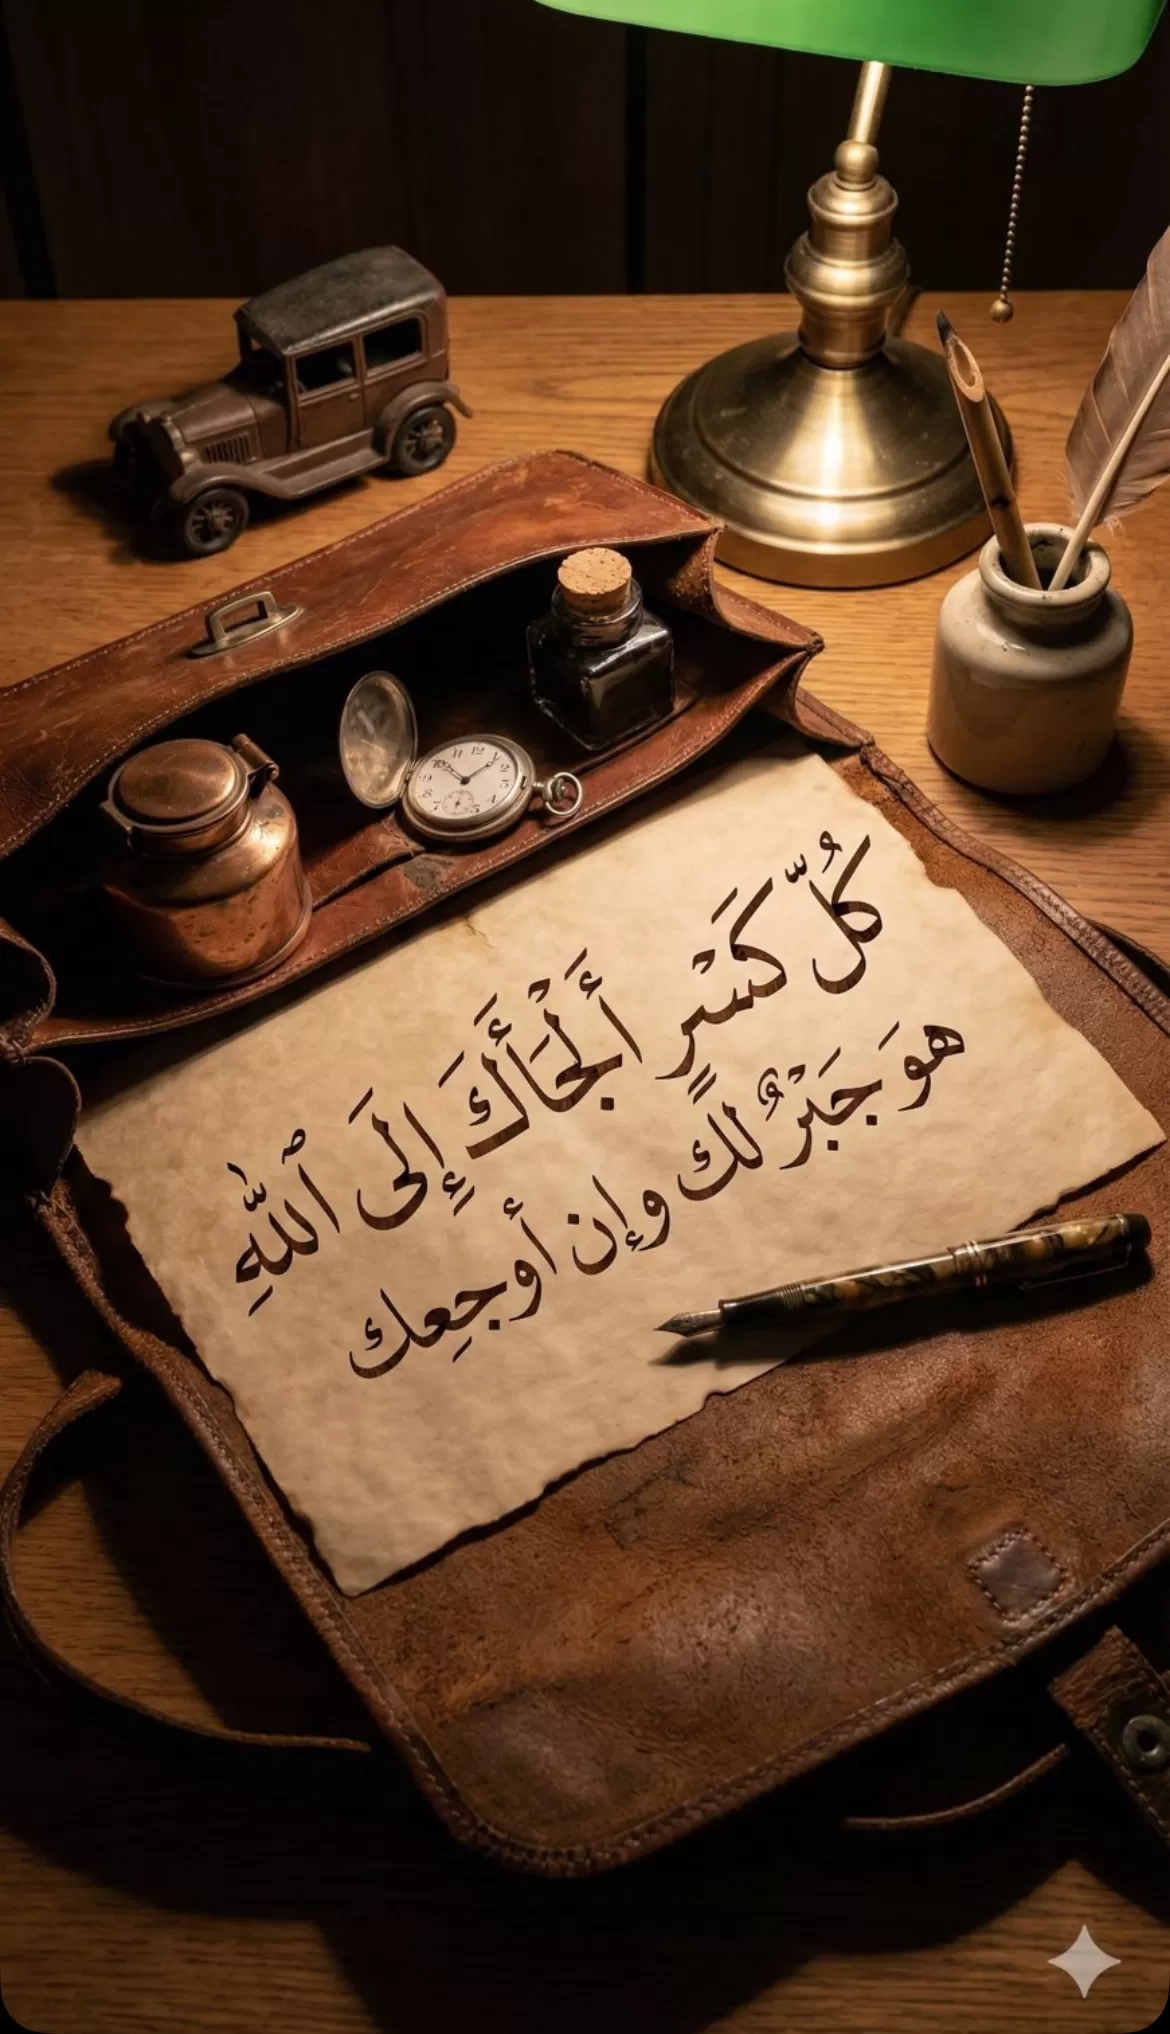 كُلّ كَسْرٍ أَلْجَأَكَ إِلَى ٱللّٰهِ
هوَ جَبْرٌ لك وإن أوجعِك